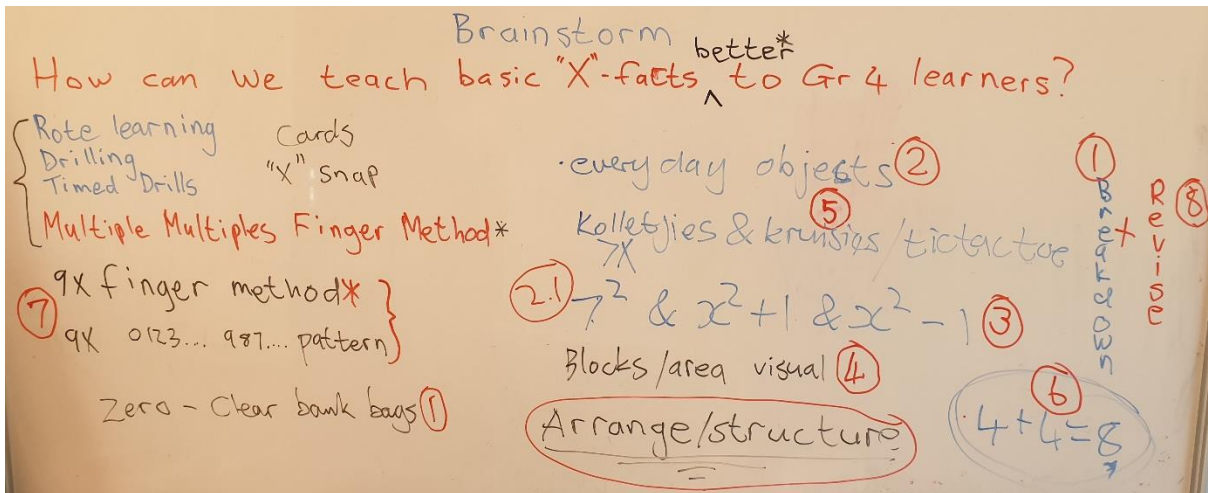 Brainstorm
better*
How can we teach basic "X"-facts ^ to Gr 4 learners?
Rote learning
Drilling
Timed Drills
Cards
"X" Snap
Multiple Multiples Finger Method*
9X finger method*
7
9X 0123... 987.... pattern
Zero - Clear bank bags 1
·everyday objects 2
5
Kolletjies & kruisies/tictactoe
7X
2.1 7² & x²+1 & x²-1 3
Blocks/area visual 4
Arrange/structure
1
Breakdown
+
Revise
8
6
·4+4=8